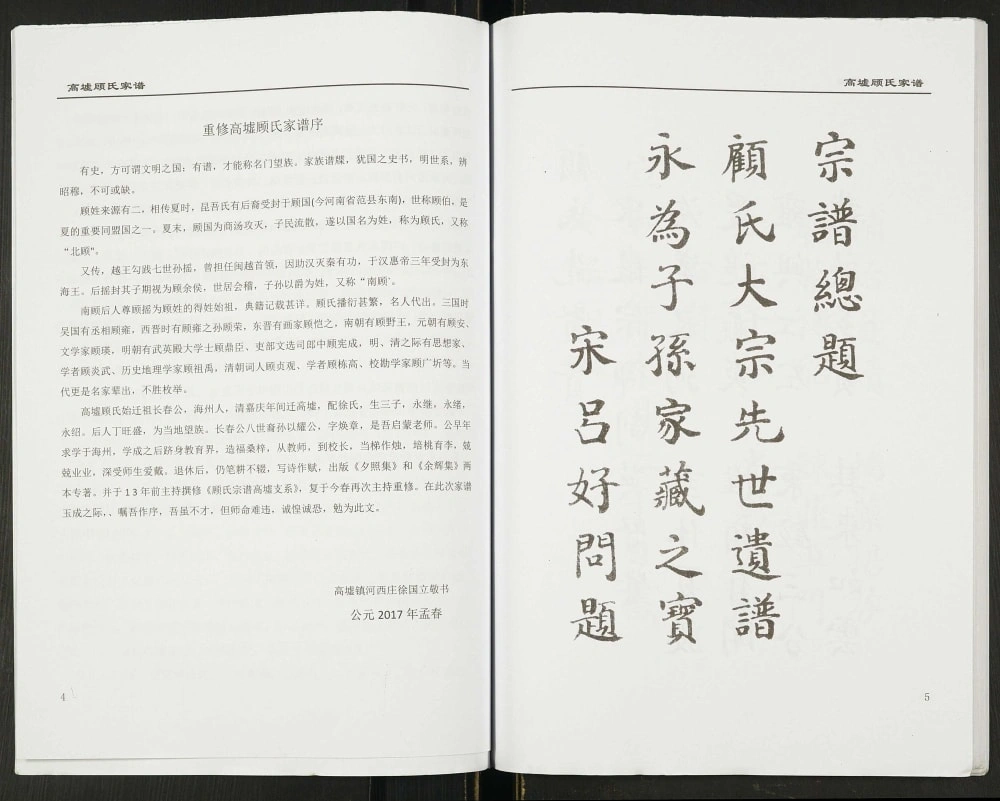 高墟顾氏家谱
重修高墟顾氏家谱序
有史，方可谓文明之国；有谱，才能称名门望族。家族谱牒，犹国之史书，明世系，辨
昭穆，不可或缺。
顾姓来源有二，相传夏时，昆吾氏有后裔受封于顾国(今河南省范县东南)，世称顾伯，是
夏的重要同盟国之一。夏末，顾国为商汤攻灭，子民流散，遂以国名为姓，称为顾氏，又称
“北顾”。
又传，越王勾践七世孙摇，曾担任闽越首领，因助汉灭秦有功，于汉惠帝三年受封为东
海王。后摇封其子期视为顾余侯，世居会稽，子孙以爵为姓，又称“南顾’。
南顾后人尊顾摇为顾姓的得姓始祖，典籍记载甚详。顾氏播衍甚繁，名人代出。三国时
吴国有丞相顾雍，西晋时有顾雍之孙顾荣，东晋有画家顾恺之，南朝有顾野王，元朝有顾安、
文学家顾瑛，明朝有武英殿大学士顾鼎臣、吏部文选司郎中顾宪成，明、清之际有思想家、
学者顾炎武、历史地理学家顾祖禹，清朝词人顾贞观、学者顾栋高、校勘学家顾广圻等。当
代更是名家辈出，不胜枚举。
高墟顾氏始迁祖长春公，海州人，清嘉庆年间迁高墟，配徐氏，生三子，永继，永绪，
永绍。后人丁旺盛，为当地望族。长春公八世裔孙以耀公，字焕章，是吾启蒙老师。公早年
求学于海州，学成之后跻身教育界，造福桑梓，从教师，到校长，当梯作烛，培桃育李，兢
兢业业，深受师生爱戴。退休后，仍笔耕不辍，写诗作赋，出版《夕照集》和《余辉集》两
本专著。并于 13 年前主持撰修《顾氏宗谱高墟支系》，复于今春再次主持重修。在此次家谱
玉成之际，、嘱吾作序，吾虽不才，但师命难违，诚惶诚恐，勉为此文。
高墟镇河西庄徐国立敬书
公元 2017 年孟春
4
高墟顾氏家谱
宗譜總題
顧氏大宗先世遺譜
永為子孫家藏之寶
宋呂好問題
5